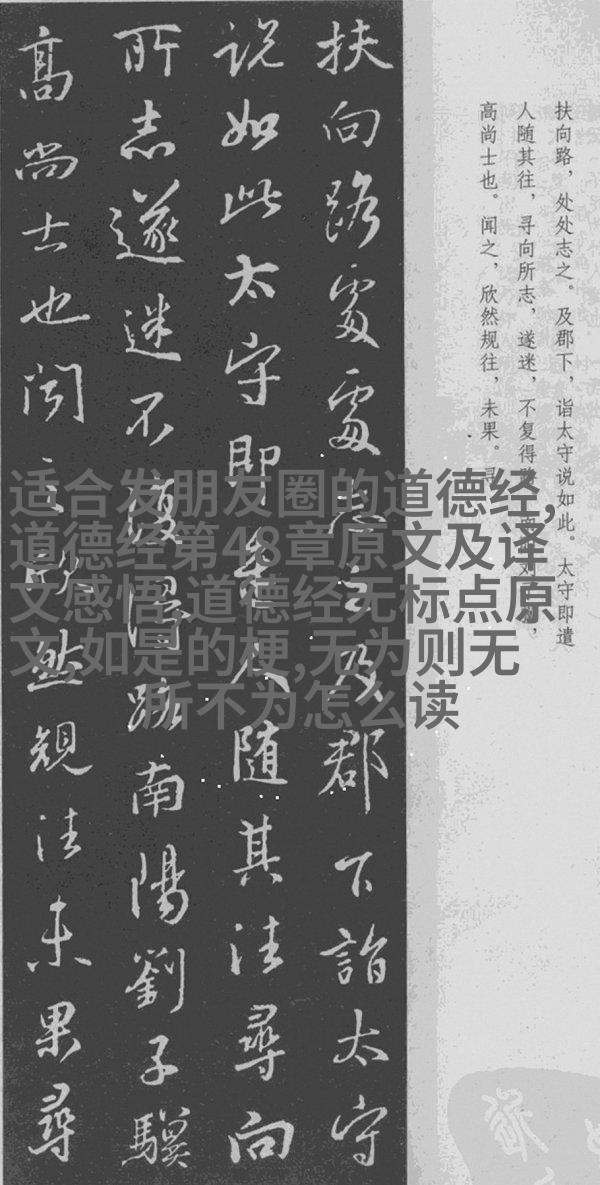 扶向路，处处志之。及郡下，诣太守说如此。太守即遣
人随其往，寻向所志，遂迷，不复得路。南阳刘子骥，
高尚士也。闻之，欣然规往，未果。寻
扶向路處處志之及郡下詣太守
说如此太守即遣人随其往尋向
所志遂迷不復得路南陽劉子驥
高尚士也闻之欣然規往未果尋
适合发朋友圈的道德经,
道德经第48章原文及译
文感悟,道德经无标点原
文,如是的梗,无为则无
所不为怎么读